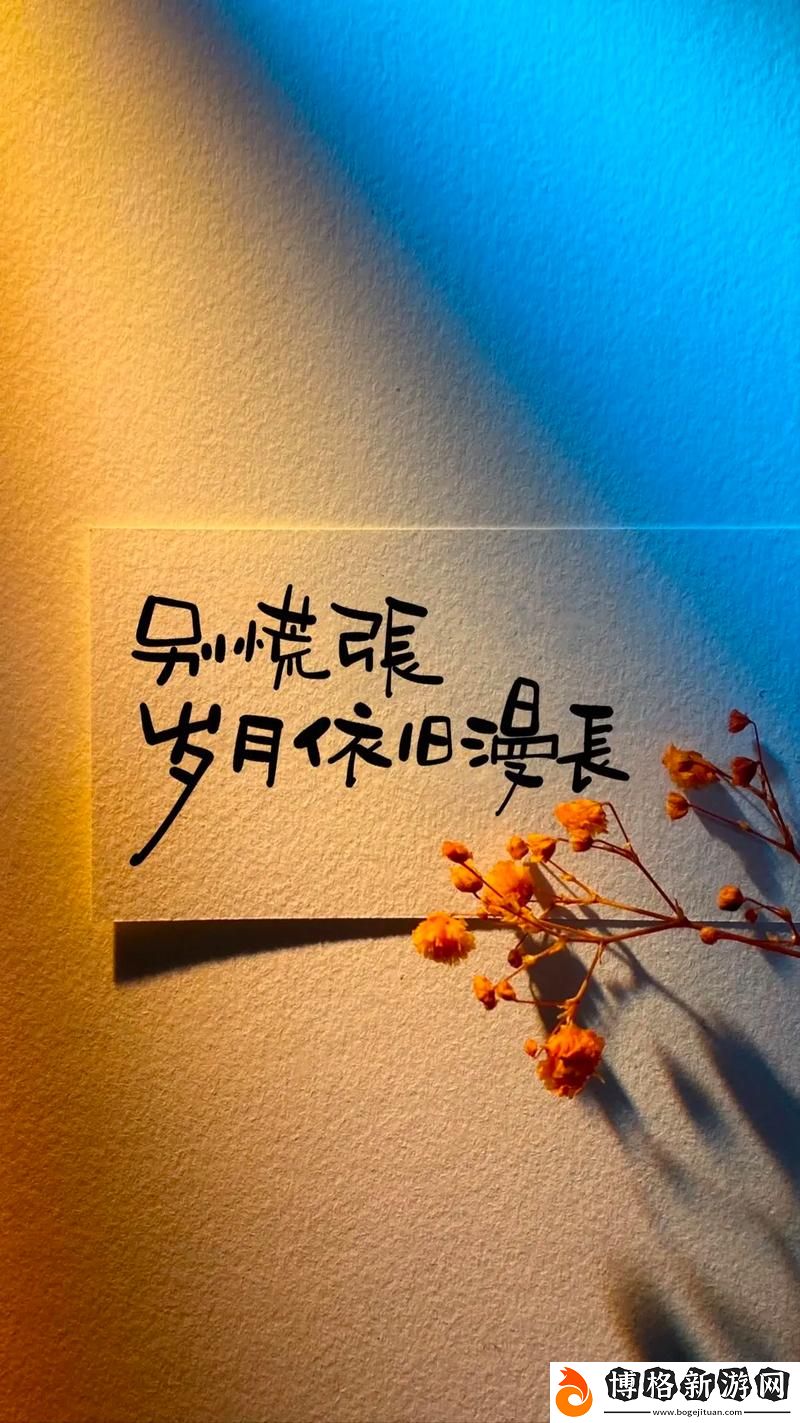 别慌張
岁月依旧漫長
博格新游网
www.bogejituan.com